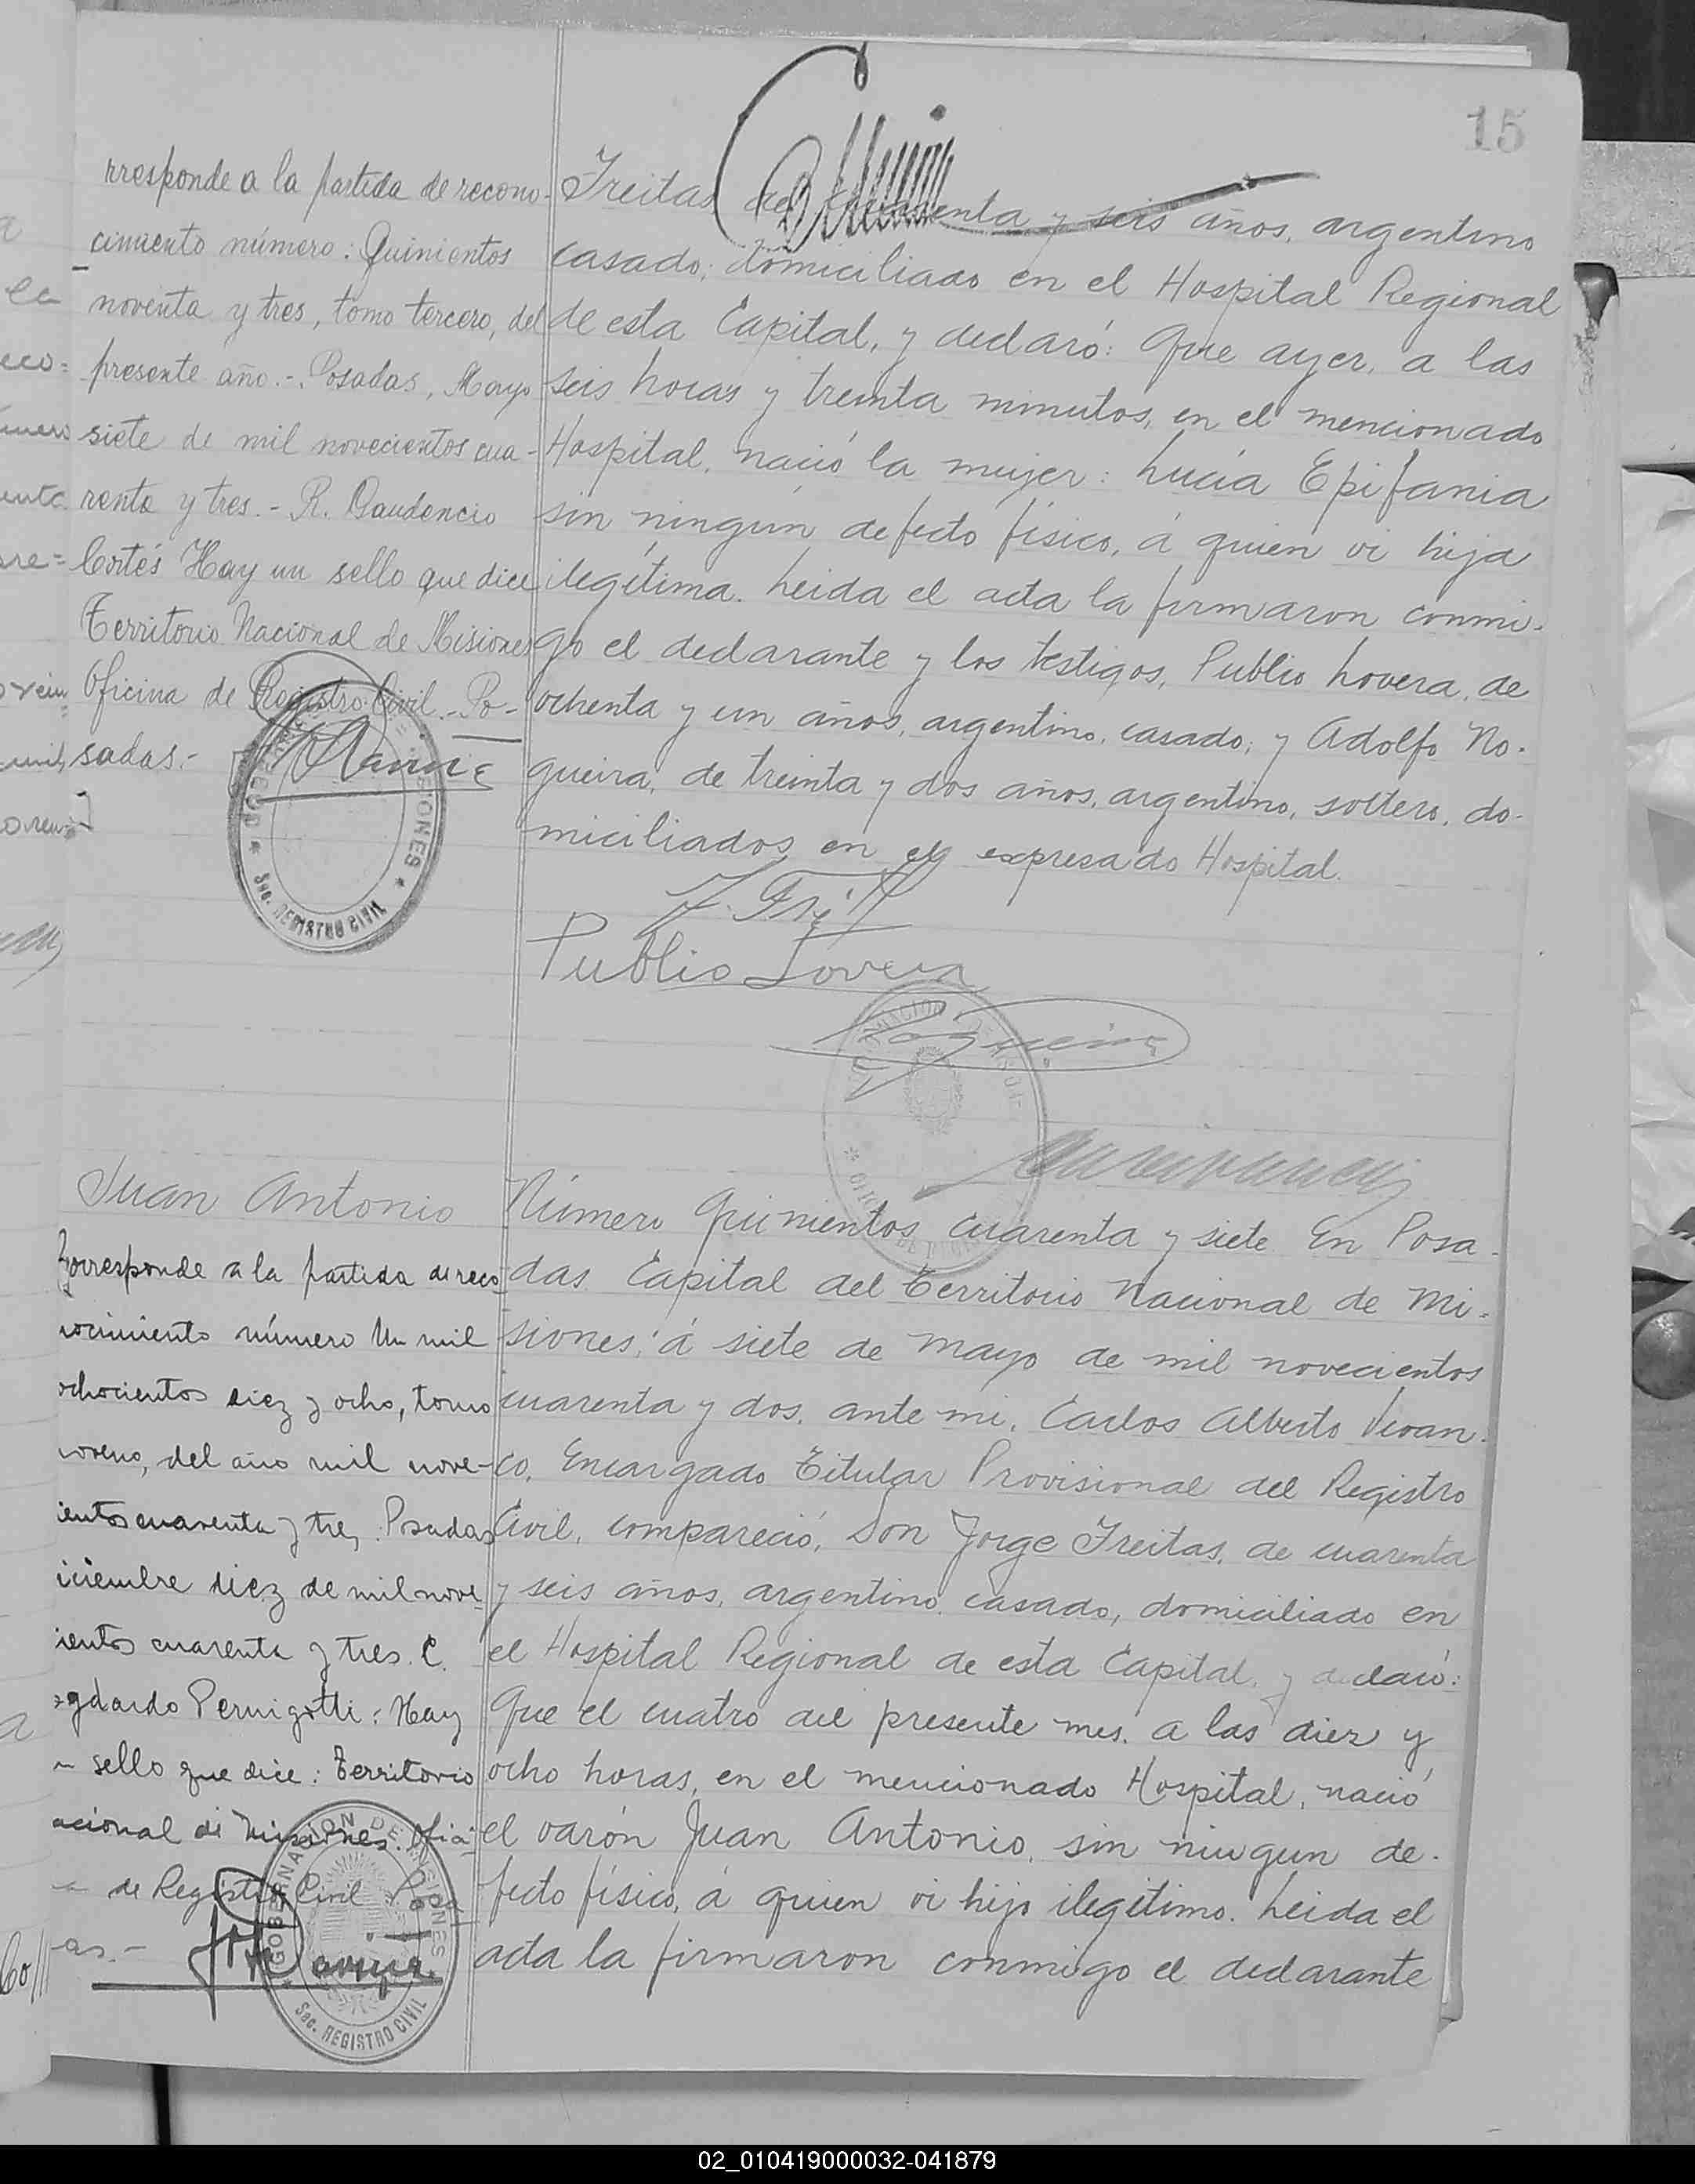 15
rresponde a la partida de recono-
cimiento número: Quinientos
noventa y tres, tomo tercero, del
presente año.-. Posadas, Mayo
siete de mil novecientos cua-
renta y tres.- R. Gaudencio
Cortés Hay un sello que dice
Territorio Nacional de Misiones
Oficina de Registro Civil.- Po-
sadas.-
Sec. REGISTRO CIVIL
Freitas de cuarenta y seis años, argentino
casado; domiciliado en el Hospital Regional
de esta Capital, y declaró: Que ayer, a las
seis horas y treinta minutos, en el mencionado
Hospital, nació la mujer: Lucía Epifania
sin ningún defecto físico, á quien vi hija
ilegítima. Leida el acta la firmaron conmi-
go el declarante y los testigos, Publio Lovera, de
ochenta y un años, argentino, casado; y Adolfo No-
gueira, de treinta y dos años, argentino, soltero, do-
miciliados en el expresado Hospital.
Publio Lovera
Juan Antonio
Corresponde a la partida de reco
nocimiento número Un mil
ochocientos diez y ocho, tomo
noveno, del año mil nove-
cientos cuarenta y tres. Posadas
iciembre diez de mil nove-
ientos cuarenta y tres. C.
gdardo Pernigotti: Hay
sello que dice: Territorio
acional de Misiones. Ofici-
de Registro Civil Po
as.-
GOBERNACION DE MISIONES
Sec. REGISTRO CIVIL
Número Quinientos cuarenta y siete En Posa-
das Capital del Territorio Nacional de Mi-
siones, á siete de Mayo de mil novecientos
cuarenta y dos, ante mi, Carlos Alberto Vivan-
co, Encargado Titular Provisional del Registro
Civil, compareció, Don Jorge Freitas, de cuarenta
y seis años, argentino casado, domiciliado en
el Hospital Regional de esta Capital, y declaró:
Que el cuatro del presente mes, a las diez y
ocho horas, en el mencionado Hospital, nació
el varón Juan Antonio, sin ningun de-
fecto físico, á quien vi hijo ilegítimo. Leida el
acta la firmaron conmigo el declarante
02_010419000032-041879